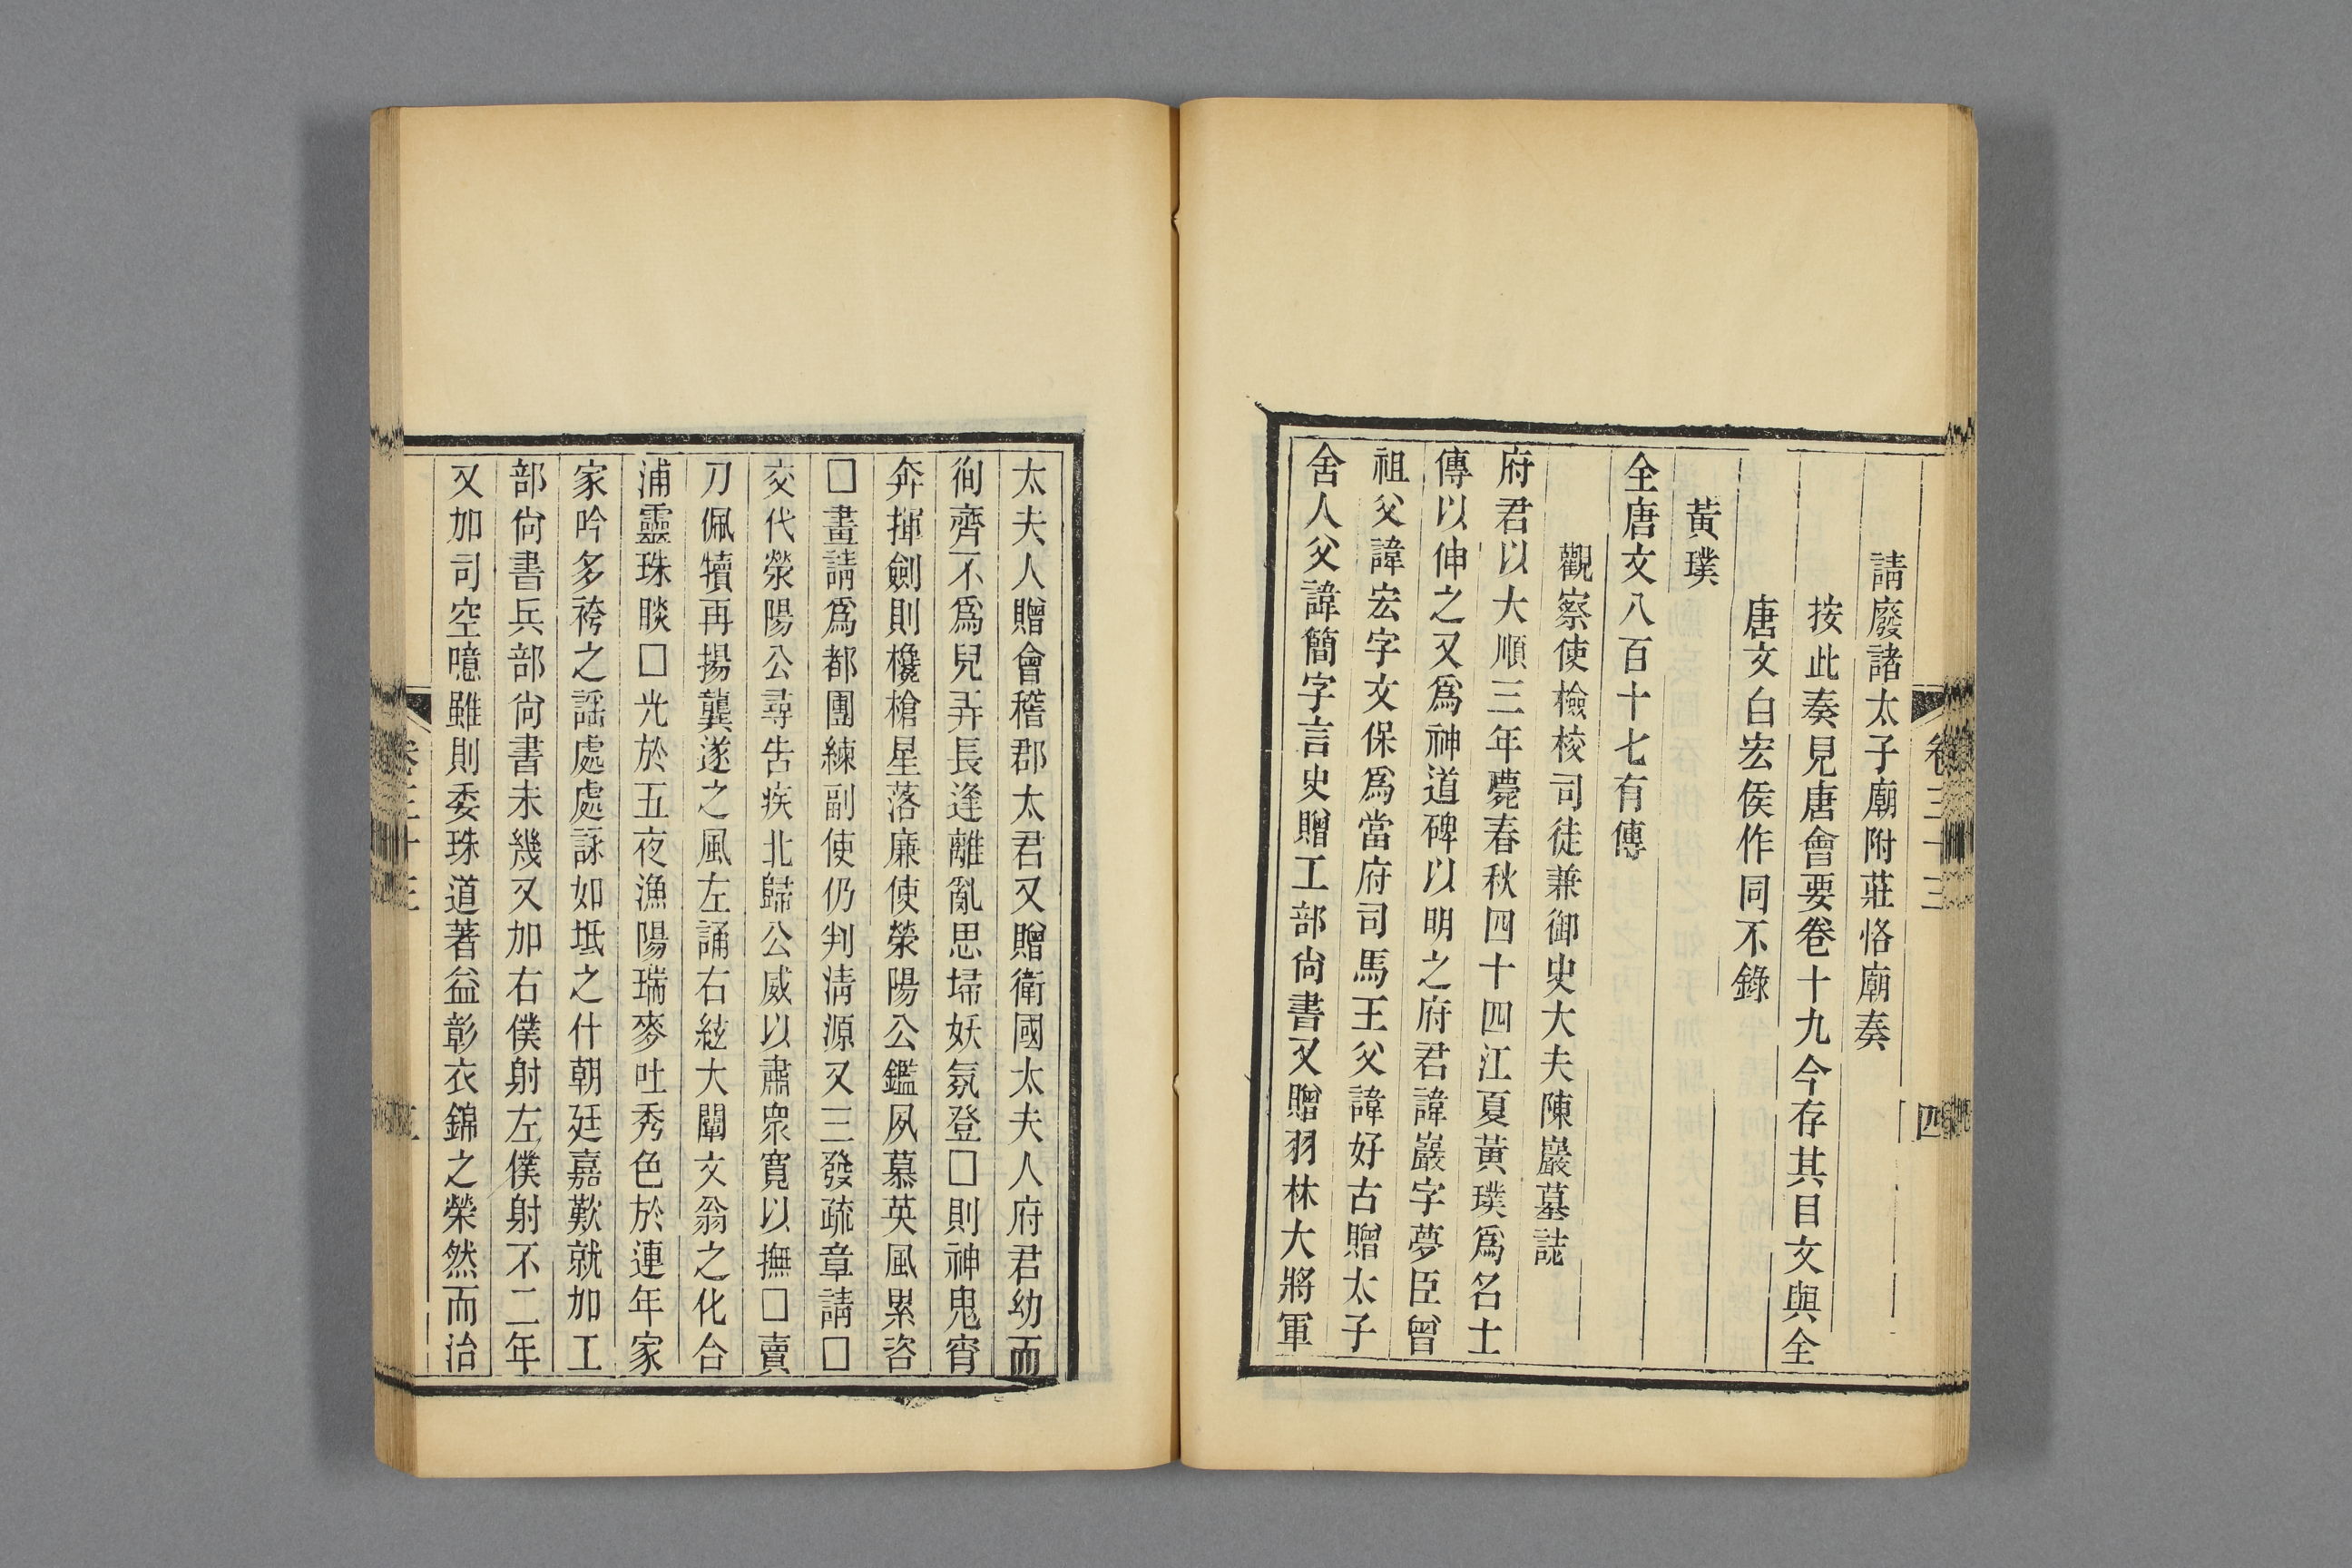 請廢諸太子廟附莊恪廟奏
按此奏見唐會要卷十九今存其目文與全
唐文白宏儀作同不錄
黃璞
全唐文八百十七有傳
觀察使檢校司徒兼御史大夫陳巖墓誌
府君以大順三年薨春秋四十四江夏黃璞爲名士
傳以伸之又爲神道碑以明之府君諱巖字夢臣曾
祖父諱宏字文保爲當府司馬王父諱好古贈太子
舍人父諱簡字言史贈工部尙書又贈羽林大將軍
太夫人贈會稽郡太君又贈衛國太夫人府君幼而
徇齊不爲兒弄長逢離亂思埽妖氛登□則神鬼宵
奔揮劍則欃槍星落廉使滎陽公鑑夙慕英風累咨
□畫請爲都團練副使仍判淸源又三發疏章請□
交代滎陽公尋吿疾北歸公威以肅衆寬以撫□賣
刀佩犢再揚龔遂之風左誦右絃大闡文翁之化合
浦靈珠睒□光於五夜漁陽瑞麥吐秀色於連年家
家吟多袴之謠處處詠如坻之什朝廷嘉歎就加工
部尙書兵部尙書未幾又加右僕射左僕射不二年
又加司空噫雖則委珠道著益彰衣錦之榮然而治